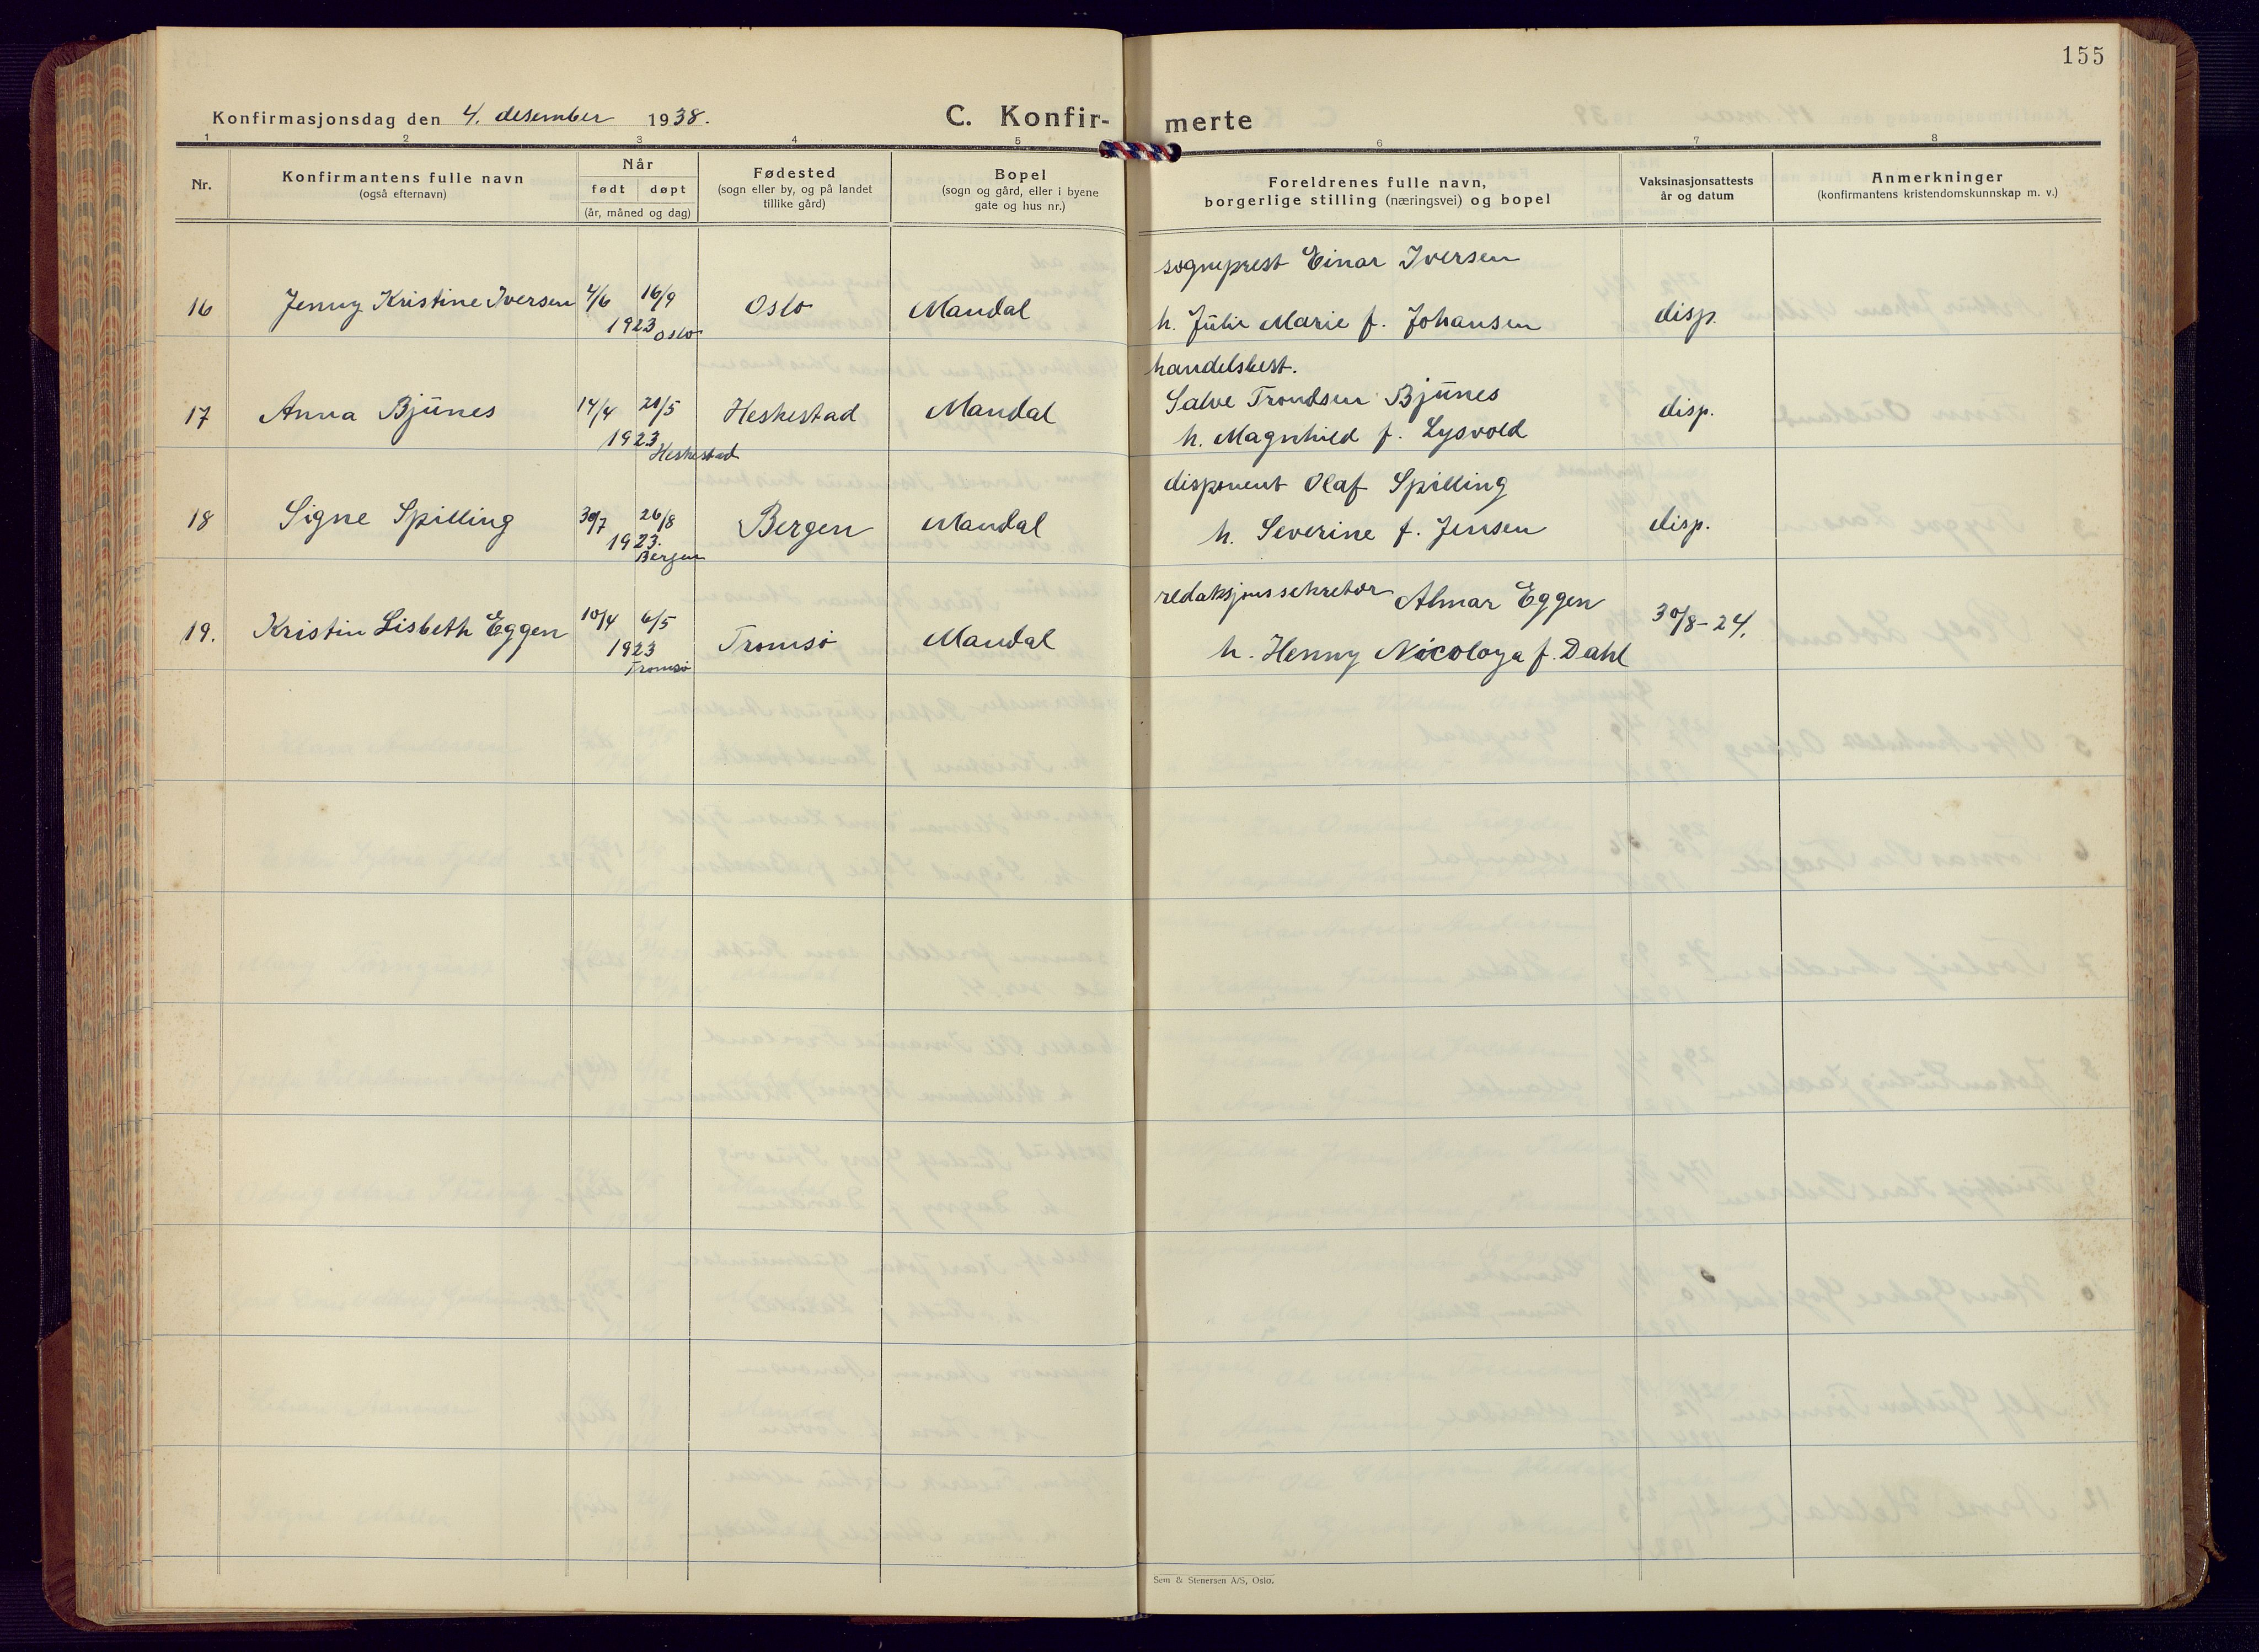 155
Konfirmasjonsdag den 4. desember 1938.
C. Konfir-
merte
1 2 3 4 5 6 7 8
Nr.
Konfirmantens fulle navn
(også efternavn)
Når
født døpt
(år, måned og dag)
Fødested
(sogn eller by, og på landet
tillike gård)
Bopel
(sogn og gård, eller i byene
gate og hus nr.)
Foreldrenes fulle navn,
borgerlige stilling (næringsvei) og bopel
Vaksinasjonsattests
år og datum
Anmerkninger
(konfirmantens kristendomskunnskap m. v.)
sogneprest Einar Iversen
16 Jenny Kristine Iversen 4/6 16/9 Oslo Mandal
h. Julie Marie f. Johansen disp.
1923 Oslo
handelsbest.
Salve Trondsen Bjünes
17 Anna Bjünes 14/4 21/5 Heskestad Mandal disp.
h. Magnhild f. Lysvold
1923
Heskestad
disponent Olaf Spilling
18 Signe Spilling 30/7 26/8 Bergen Mandal disp.
h. Severine f. Jensen
1923.
Bergen
redaksjonssekretær Almar Eggen
19. Kristin Lisbeth Eggen 10/4 6/5 Tromsö Mandal 30/8-24.
h. Henny Nicolaya f. Dahl
1923
Tromsö
Sem & Stenersen A/S, Oslo.